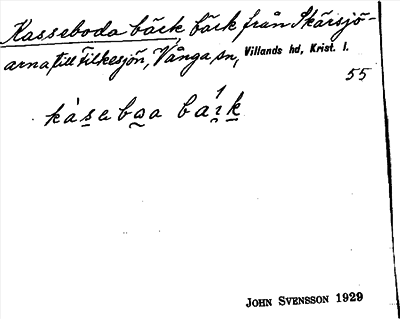 Kasseboda bäck bäck från Skärsjö-
arna till Filkesjön, Vånga sn, Villands hd, Krist. l.
55
John Svensson 1929